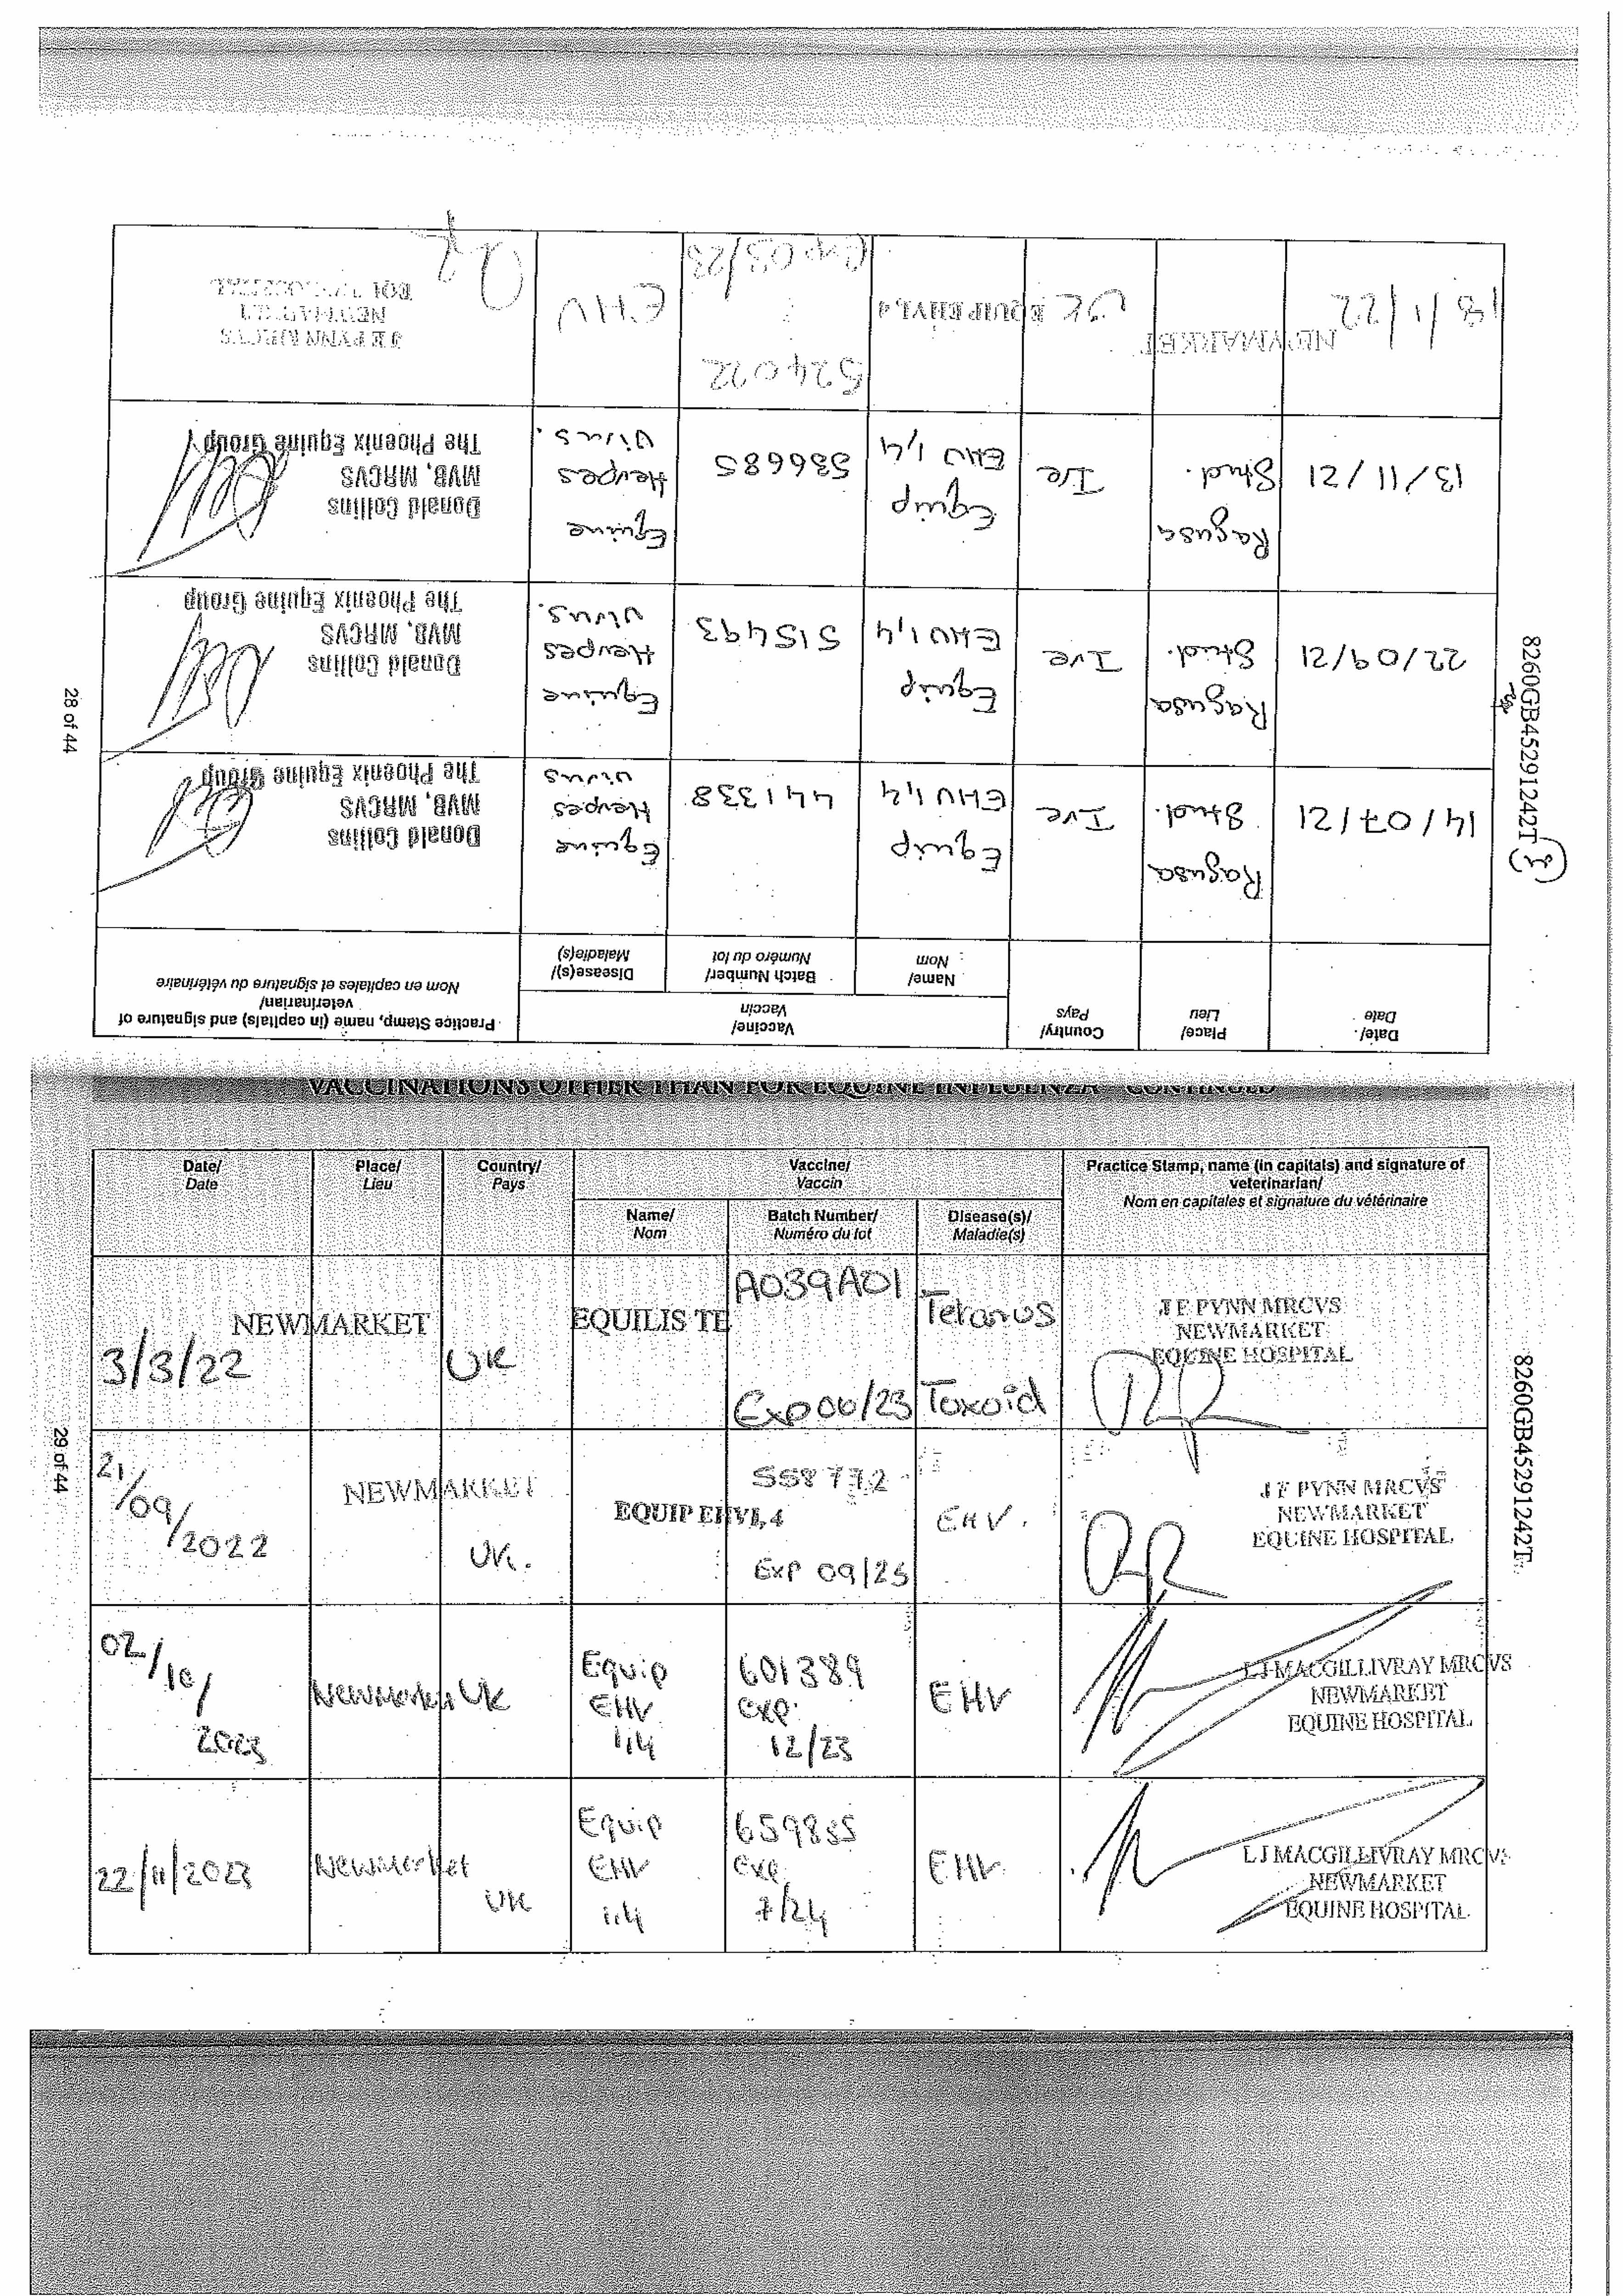 28 of 44
8260GB45291242T
(2)
Date/ Date
Place/ Lieu
Country/ Pays
Vaccine/ Vaccin
Practice Stamp, name (in capitals) and signature of veterinarian/
Nom en capitales et signature du vétérinaire
Name/ Nom
Batch Number/ Numéro du lot
Disease(s)/ Maladie(s)
14/07/21
Ragusa Stud.
Ire
Equip EHV 1,4
441338
Equine Herpes Virus
Donald Collins
MVB, MRCVS
The Phoenix Equine Group
22/09/21
Ragusa Stud.
Ire
Equip EHV 1,4
515493
Equine Herpes Virus.
Donald Collins
MVB, MRCVS
The Phoenix Equine Group
13/11/21
Ragusa Stud.
Ire
Equip EHV 1,4
536685
Equine Herpes Virus.
Donald Collins
MVB, MRCVS
The Phoenix Equine Group
18/1/22
NEWMARKET
UK
EQUIP EHV1,4
524022
Exp 03/23
EHV
J F PYNN MRCVS
NEWMARKET
VACCINATIONS OTHER THAN FOR EQUINE INFLUENZA - CONTINUED
29 of 44
8260GB45291242T
Date/ Date
Place/ Lieu
Country/ Pays
Vaccine/ Vaccin
Practice Stamp, name (in capitals) and signature of
veterinarian/
Nom en capitales et signature du vétérinaire
Name/ Nom
Batch Number/ Numéro du lot
Disease(s)/ Maladie(s)
3/3/22
NEWMARKET
UK
EQUILIS TE
A039A01
Exp 06/23
Tetanus
Toxoid
J F PYNN MRCVS
NEWMARKET
EQUINE HOSPITAL
21/09/2022
NEWMARKET
UK.
EQUIP EHV1,4
558772
Exp 09/23
EHV.
J F PYNN MRCVS
NEWMARKET
EQUINE HOSPITAL
02/10/2023
Newmarket
UK
Equip EHV 1,4
601389
exp:
12/23
EHV
L J MACGILLIVRAY MRCVS
NEWMARKET
EQUINE HOSPITAL
22/11/2023
Newmarket
UK
Equip EHV 1,4
659835
exp:
7/24
EHV
L J MACGILLIVRAY MRCVS
NEWMARKET
EQUINE HOSPITAL